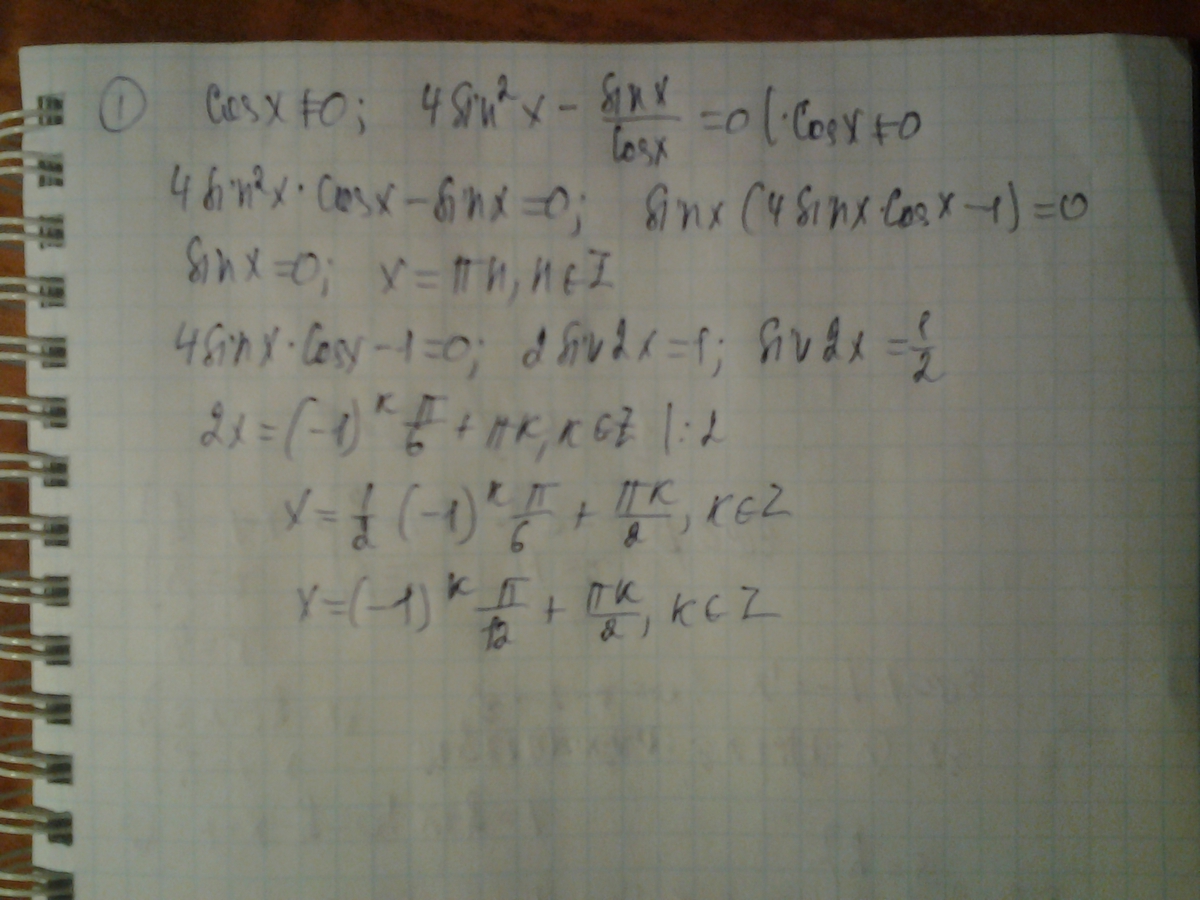 ① cosx ≠ 0; 4 sin²x − sinx/cosx = 0 | · cosx ≠ 0
4 sin²x · cosx − sinx = 0; sinx (4 sinx · cosx − 1) = 0
sinx = 0; x = πn, n ∈ Z
4 sinx · cosx − 1 = 0; 2 sin2x = 1; sin2x = 1/2
2x = (−1)^k π/6 + πk, k ∈ Z | : 2
x = 1/2 (−1)^k π/6 + πk/2, k ∈ Z
x = (−1)^k π/12 + πk/2, k ∈ Z